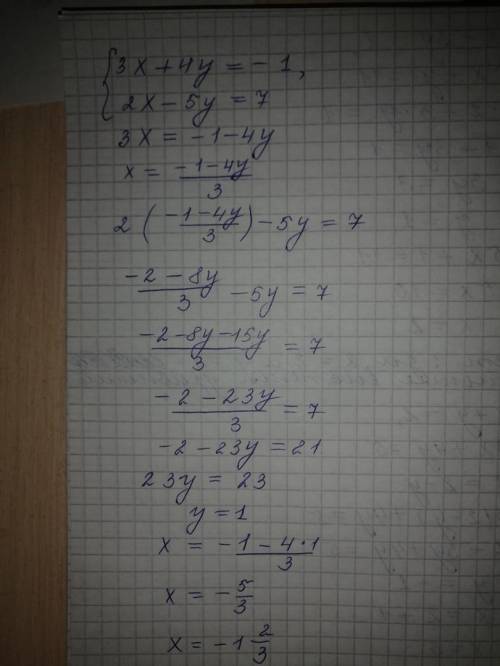 {3x+4y=-1,
2x-5y=7
3x=-1-4y
x=(-1-4y)/3
2((-1-4y)/3)-5y=7
(-2-8y)/3-5y=7
(-2-8y-15y)/3=7
(-2-23y)/3=7
-2-23y=21
23y=23
y=1
x=(-1-4·1)/3
x=-5/3
x=-1 2/3